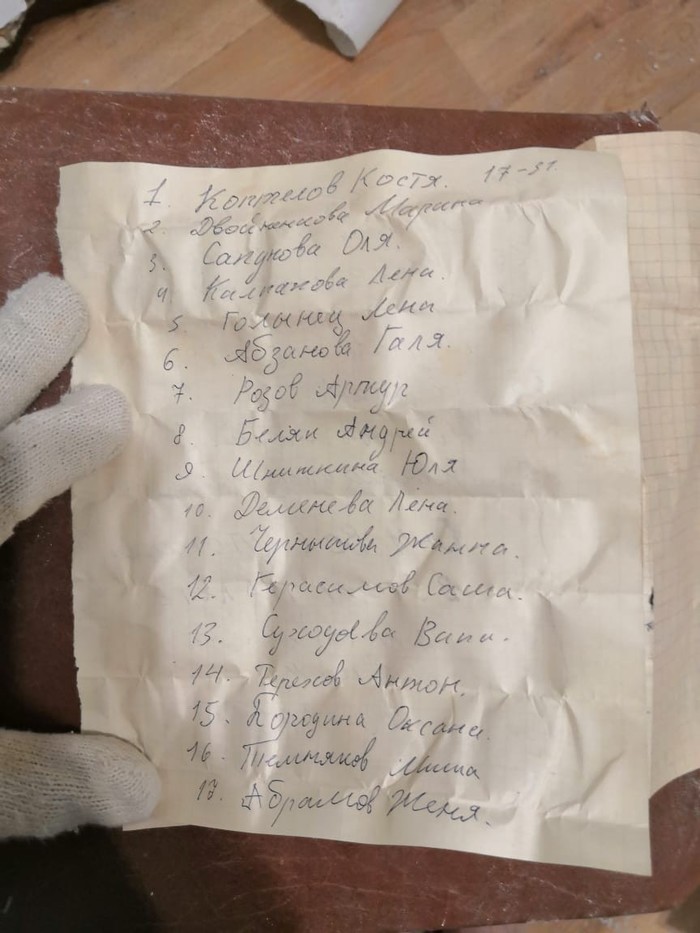 1. Коптелов Костя. 17-91.
2. Двойникова Марина
3. Сапунова Оля.
4. Калпахова Лена.
5. Голынец Лена
6. Абзанова Галя.
7. Розов Артур
8. Беляк Андрей
9. Шниткина Юля
10. Деменева Лена.
11. Жанна.
12. Герасимов Саша.
13.
14. Терехов Антон.
15. Бородина Оксана.
16. Темняков Миша
17. Абрамов Женя.